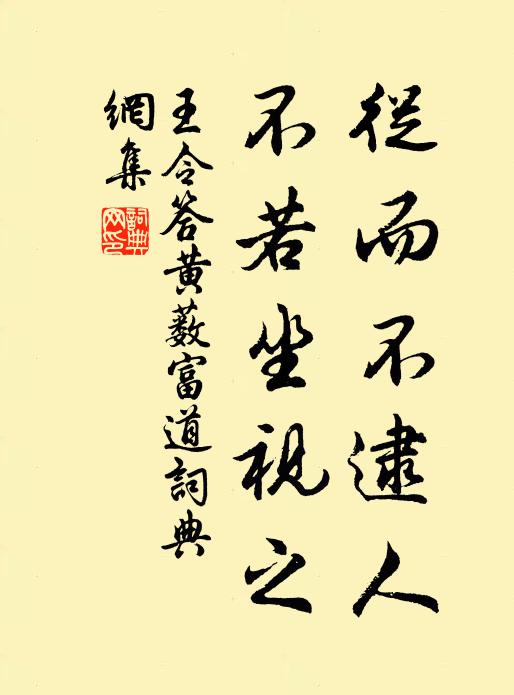 從而不逮人
不若坐視之
王令答黄藪富道詞典
網集
詞典網印